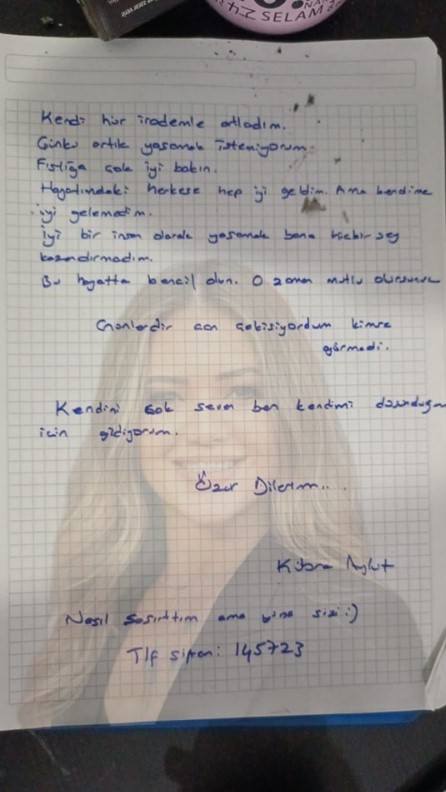 SELAM
Kendi hür irademle atladım.
Çünkü artık yaşamak istemiyorum.
Fıstığa çok iyi bakın.
Hayatımdaki herkese hep iyi geldim. Ama kendime
iyi gelemedim.
İyi bir insan olarak yaşamak bana hiçbir şey
kazandırmadı.
Bu hayatta bencil olun. O zaman mutlu olursunuz
Günlerdir can çekişiyordum kimse
görmedi.
Kendinizi çok sevin ben kendimi
için gidiyorum.
Özür Dilerim...
Kübra Aykut
Nasıl şaşırttım ama yine sizi :)
Tlf şifrem: 145723